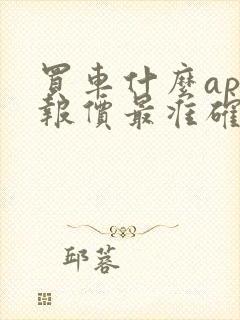 買車什麼ap
報價最准確
邱蓉